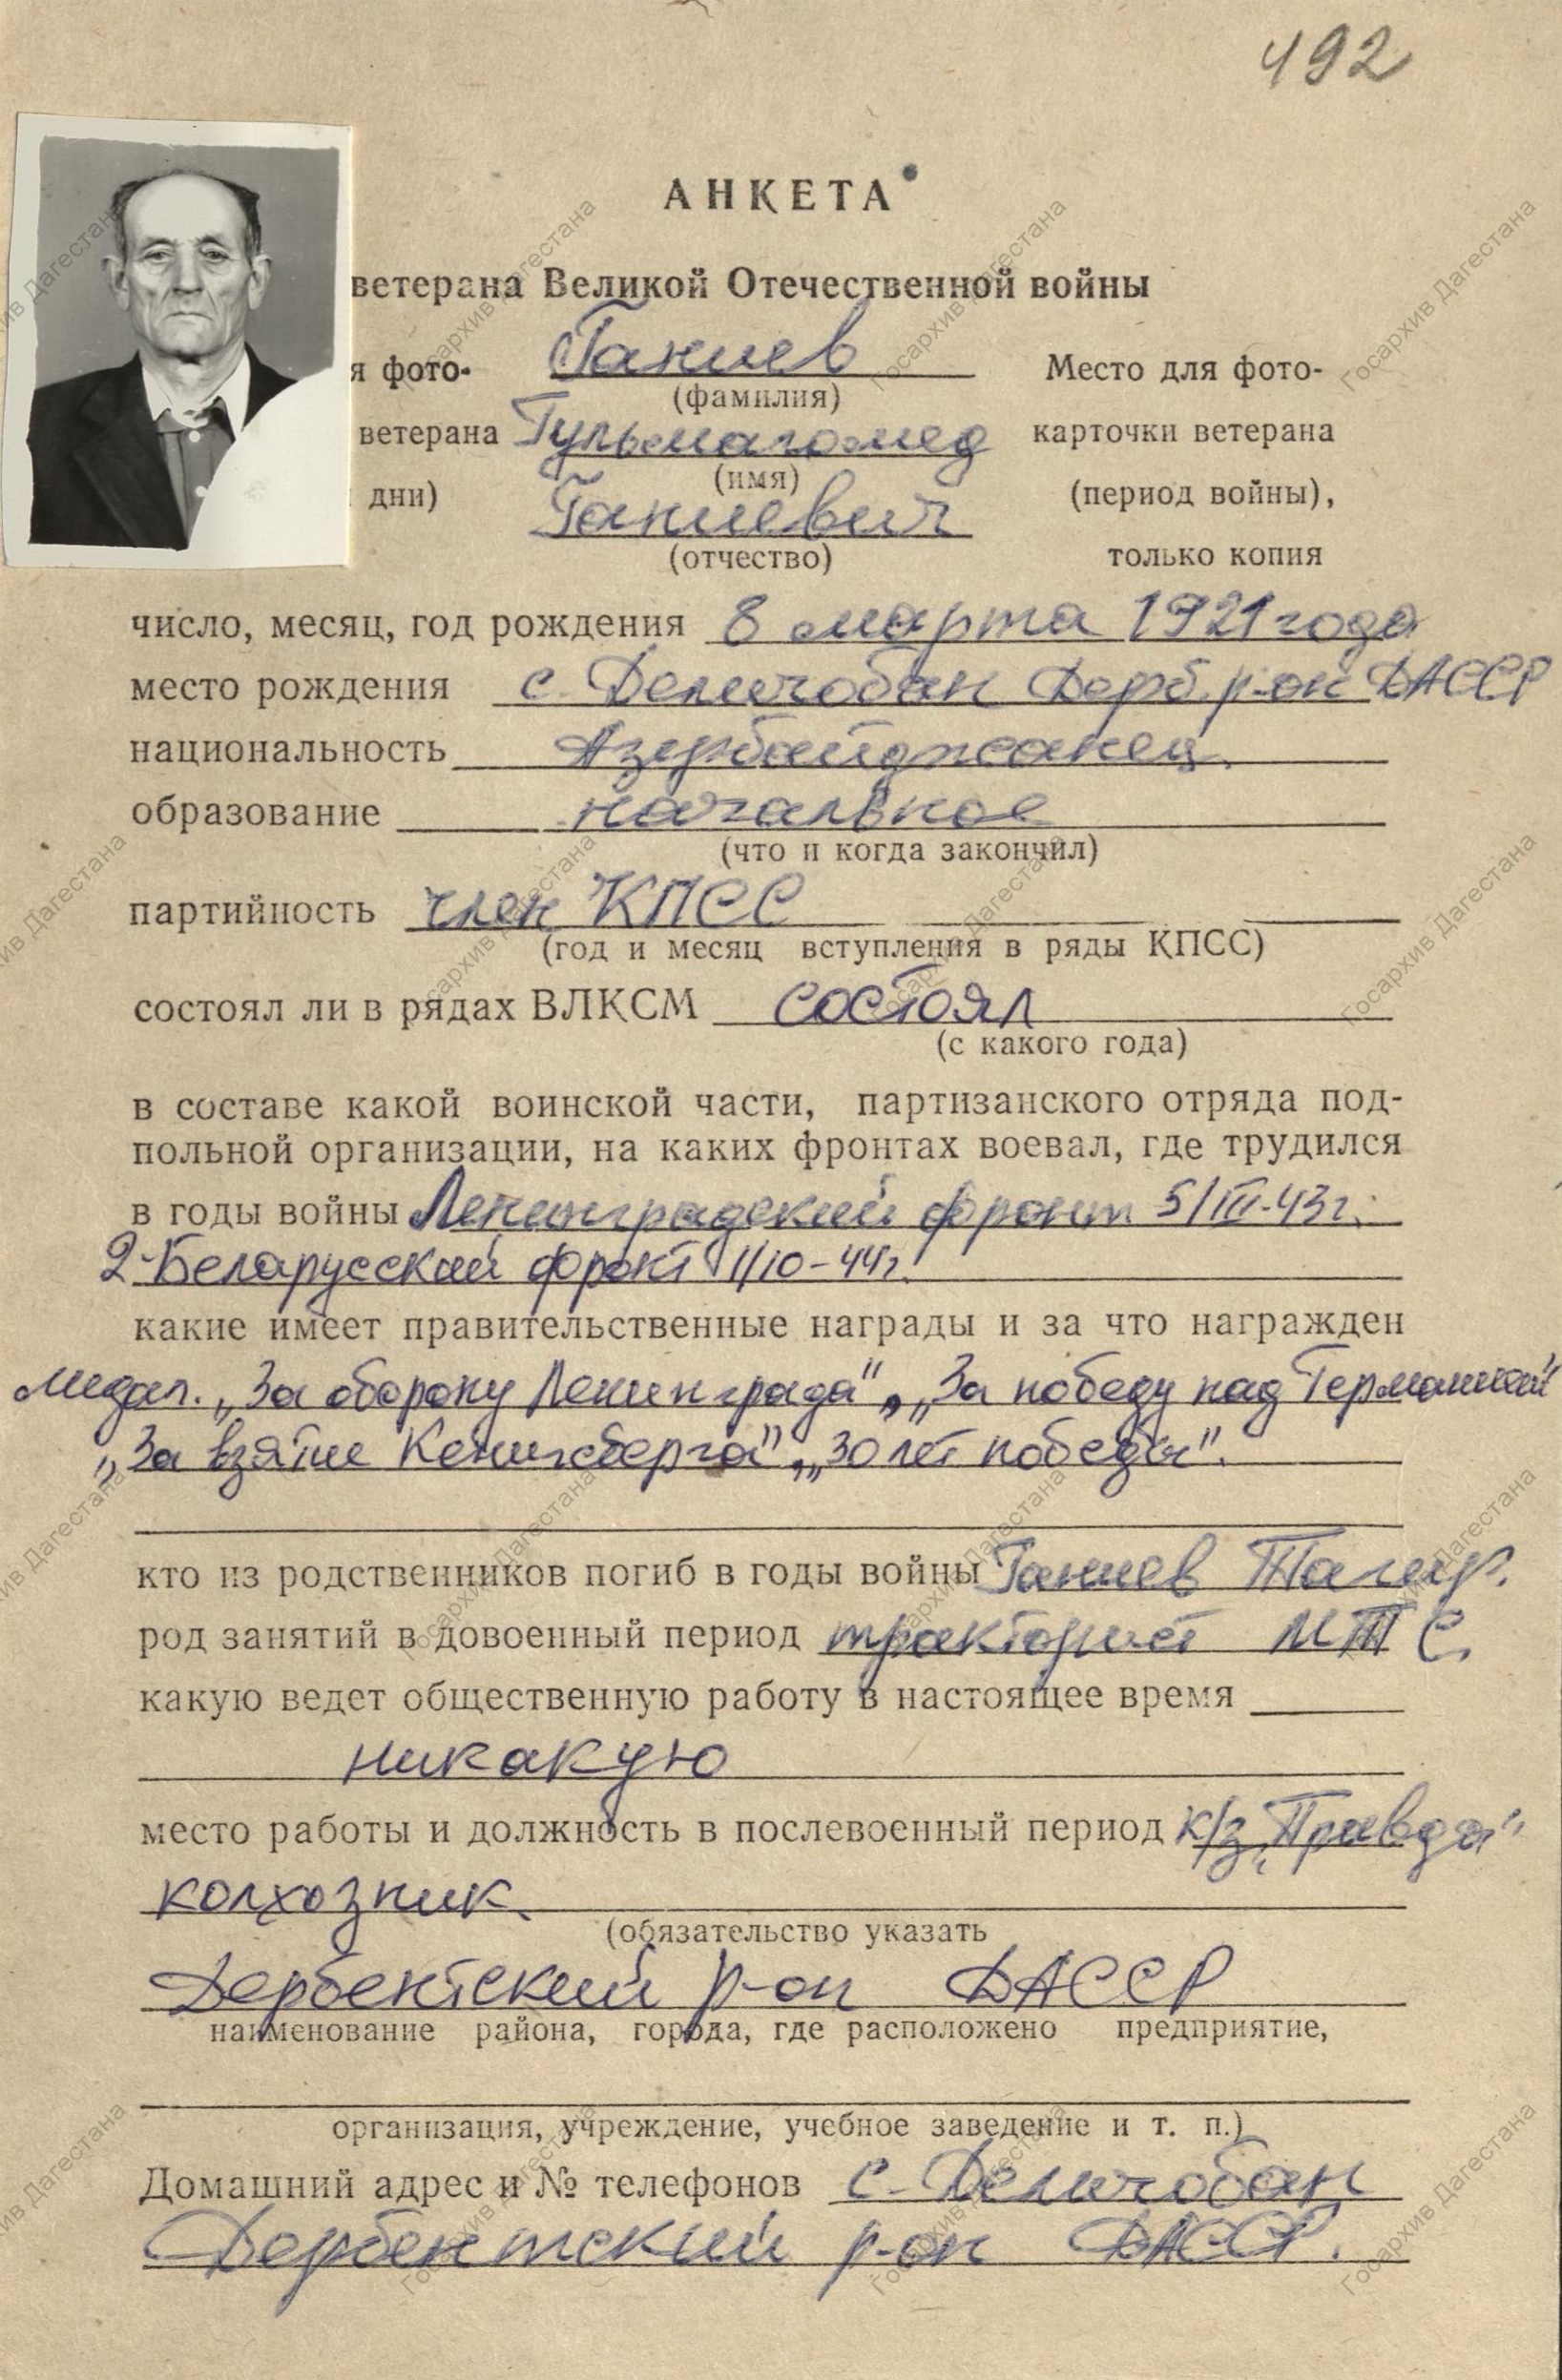 492
АНКЕТА
ветерана Великой Отечественной войны
я фото- Ганиев Место для фото-
(фамилия)
ветерана Гульмагомед карточки ветерана
(имя)
дни) Ганиевич (период войны),
(отчество) только копия
число, месяц, год рождения 8 марта 1921 года
место рождения с. Деличобан Дерб. р-он ДАССР
национальность Азербайджанец.
образование начальное
(что и когда закончил)
партийность член КПСС
(год и месяц вступления в ряды КПСС)
состоял ли в рядах ВЛКСМ состоял
(с какого года)
в составе какой воинской части, партизанского отряда под-
польной организации, на каких фронтах воевал, где трудился
в годы войны Ленинградский фронт 5/III-43г.
2-Беларусский фронт 1/10-44г.
какие имеет правительственные награды и за что награжден
медал. „За оборону Ленинграда", „За победу над Германией"
„За взятие Кенигсберга", „30 лет победы".
кто из родственников погиб в годы войны Ганиев Тагир.
род занятий в довоенный период тракторист МТС,
какую ведет общественную работу в настоящее время
никакую
место работы и должность в послевоенный период к/з „Правда"
колхозник.
(обязательство указать
Дербентский р-он ДАССР
наименование района, города, где расположено предприятие,
организация, учреждение, учебное заведение и т. п.)
Домашний адрес и № телефонов с. Деличобан
Дербентский р-он ДАССР.
Госархив Дагестана